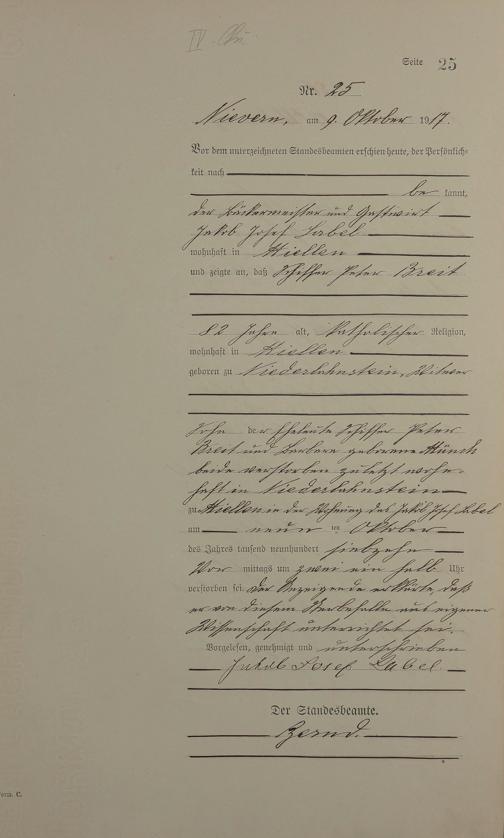 IV. Chr.
Seite 25
Nr. 25
Nievern, am 9. Oktober 1917.
Vor dem unterzeichneten Standesbeamten erschien heute, der Persönlich-
keit nach
be kannt,
der Bäckermeister und Gastwirt
Jakob Josef Label
wohnhaft in Miellen
und zeigte an, daß Schiffer Peter Breit
82 Jahre alt, katholischer Religion,
wohnhaft in Miellen
geboren zu Niederlahnstein, Witwer
Sohn der Eheleute Schiffer Peter
Breit und Barbara geborene Münch
beide verstorben zuletzt wohn-
haft in Niederlahnstein
zu Miellen in der Wohnung des Jakob Josef Label
am neun ten Oktober
des Jahres tausend neunhundert siebzehn
Vor mittags um zwei ein halb Uhr
verstorben sei. Der Anzeigende erklärte, daß
er von diesem Sterbefalle aus eigener
Wissenschaft unterrichtet sei.
Vorgelesen, genehmigt und unterschrieben
Jakob Josef Label
Der Standesbeamte.
Bernd.
Form. C.